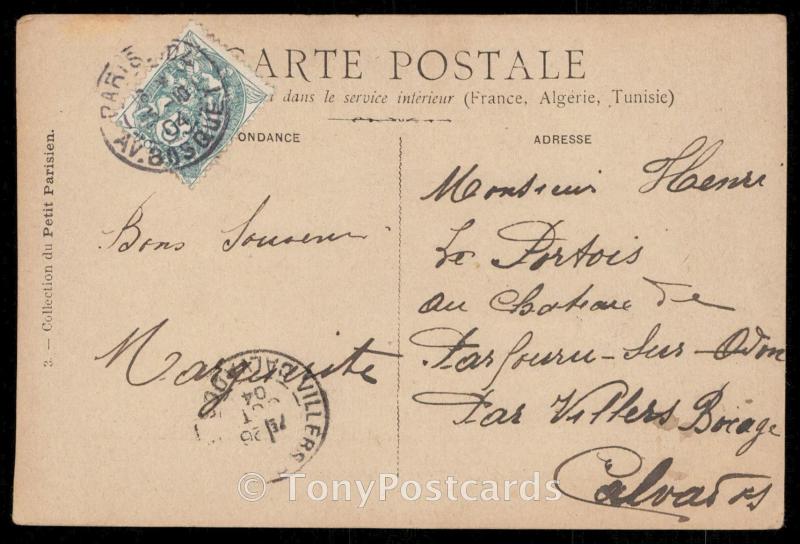 CARTE POSTALE
dans le service intérieur (France, Algérie, Tunisie)
ONDANCE
ADRESSE
PARIS
04
AV. BOSQUET
3. — Collection du Petit Parisien.
Bons Souvenir
Marguerite
Monsieur Henri
Le Portois
au Chateau de
Parfouru-sur-Odon
Par Villers Bocage
Calvados
VILLERS
26
04
© TonyPostcards